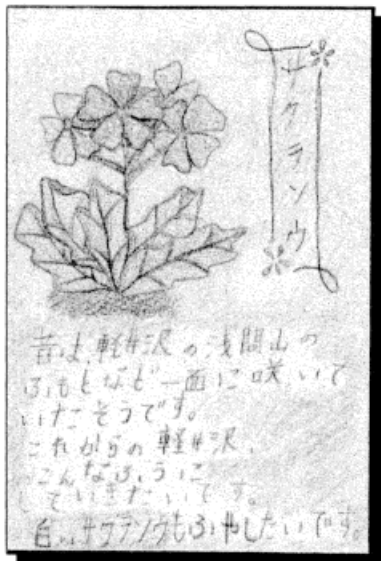 サクラソウ
昔は、軽井沢の浅間山の
ふもとなど一面に咲いて
いたそうです。
これからの軽井沢、
こんなふうに
していきたいです。
白いサクラソウもふやしたいです。